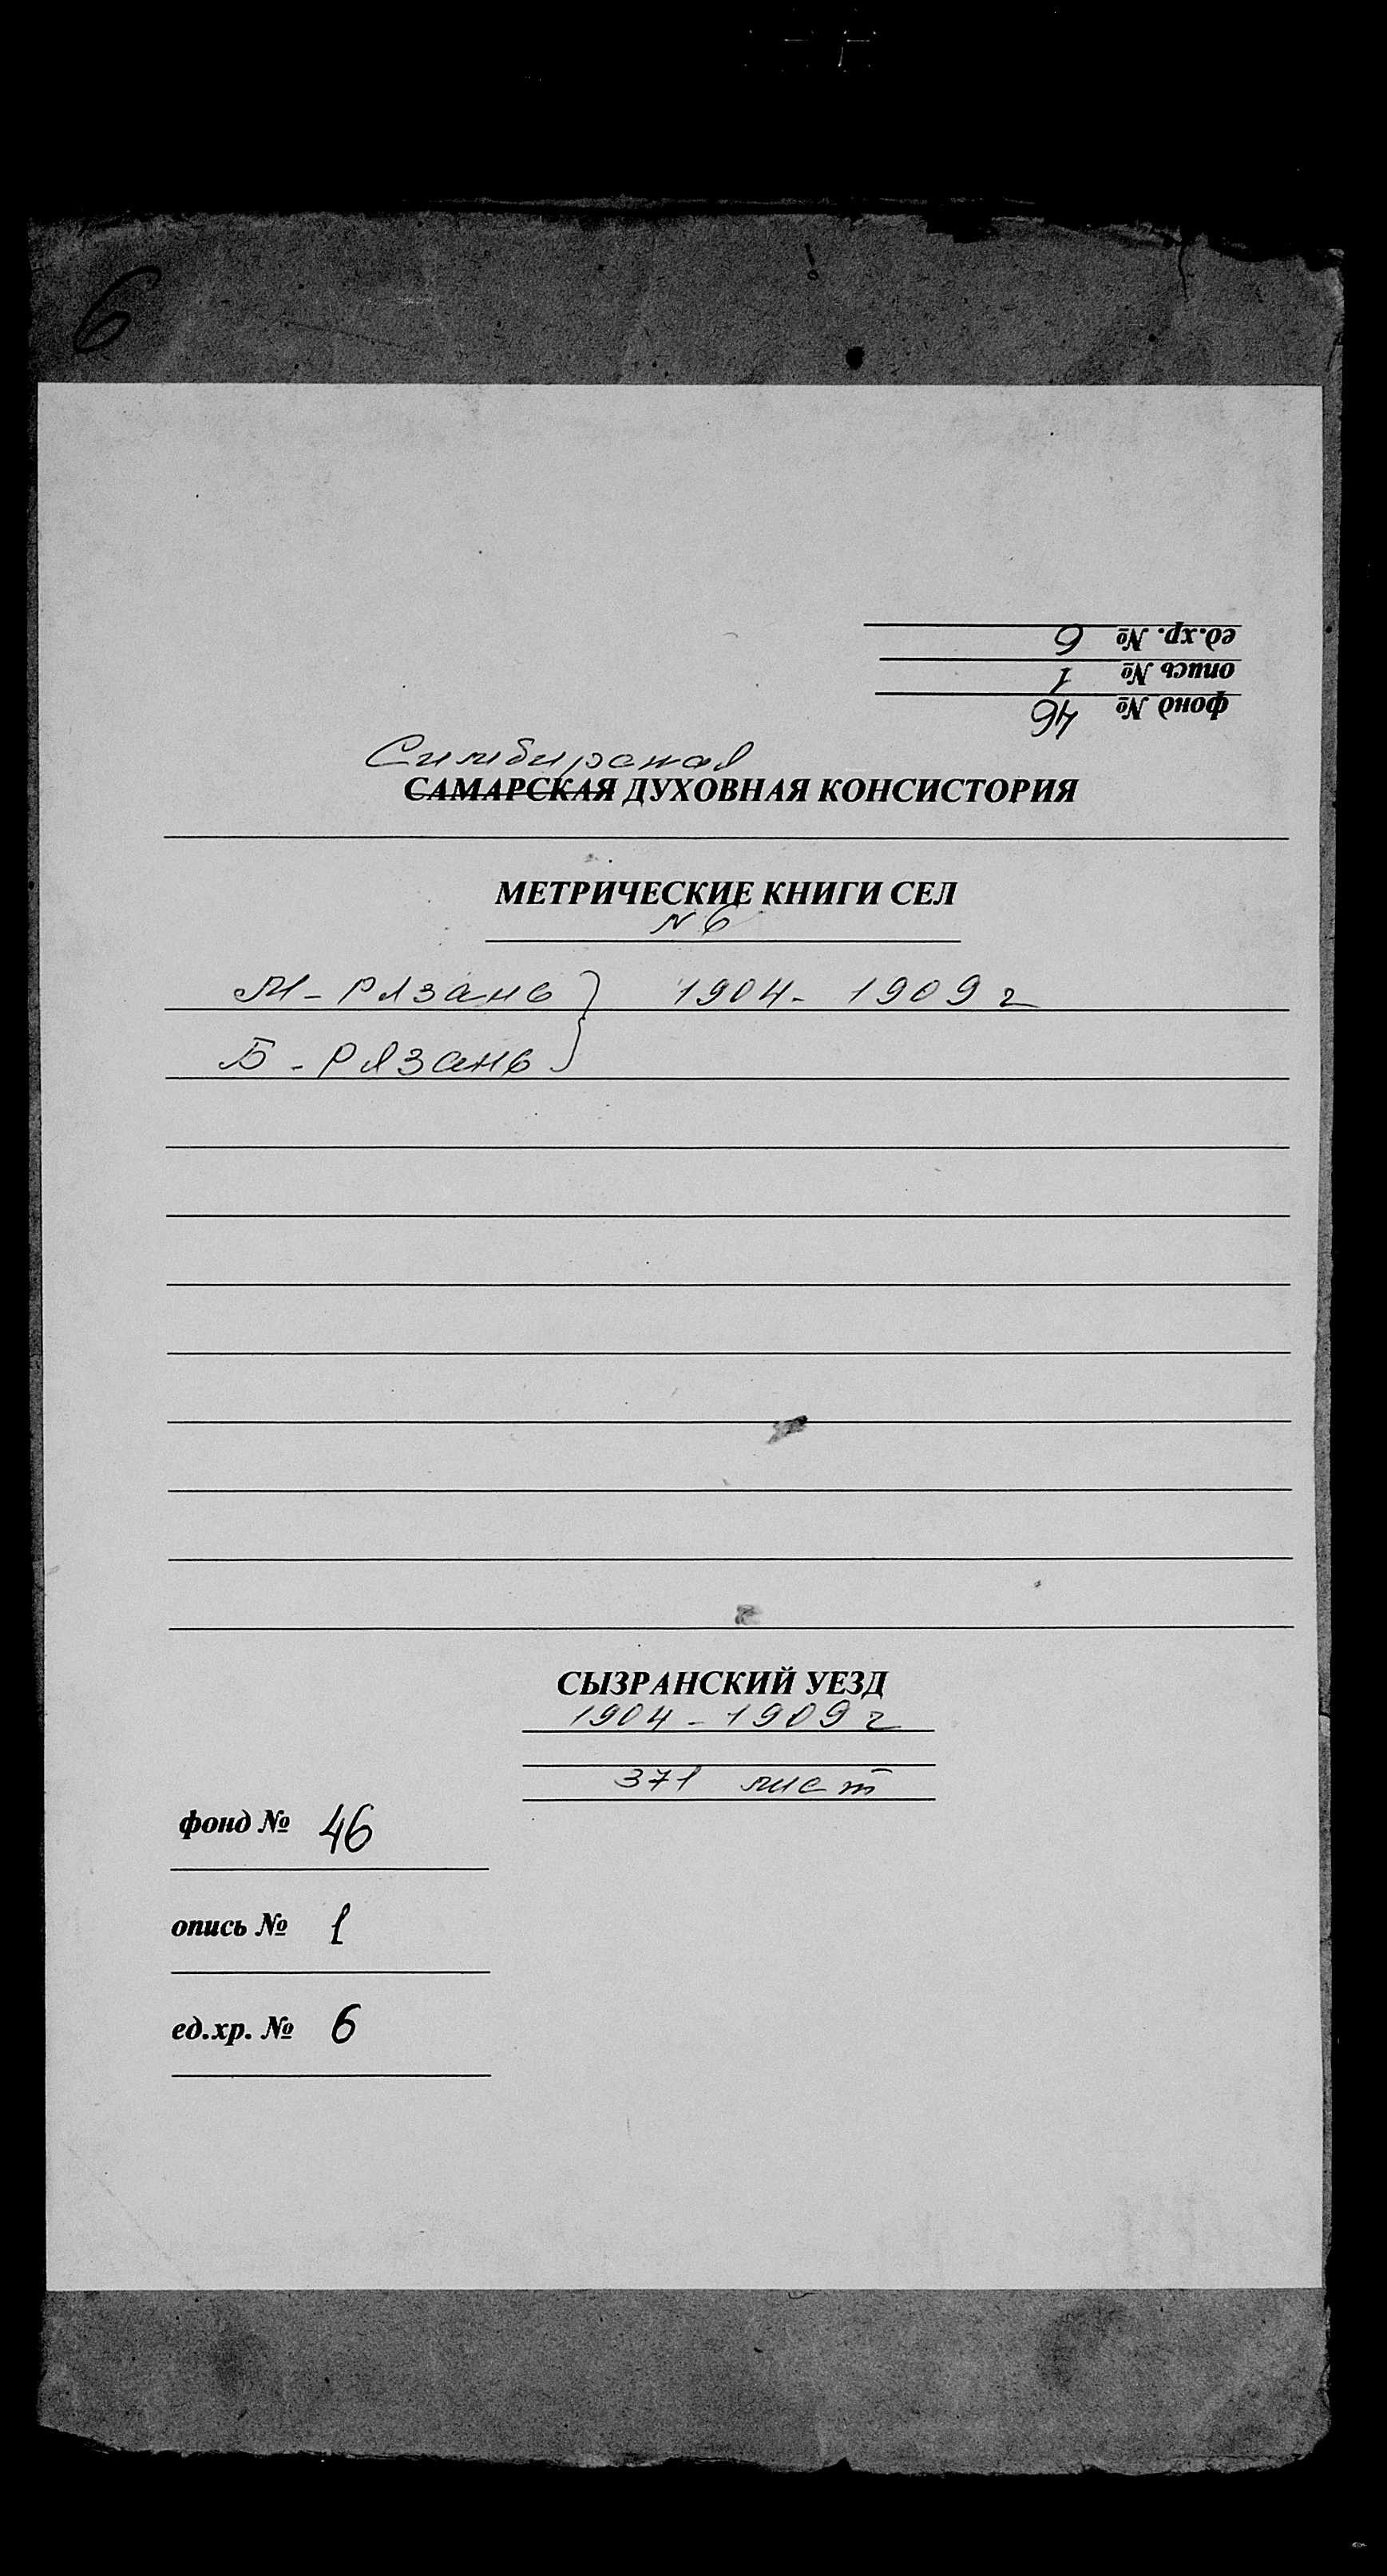 6
ед.хр. № 6
опись № 1
фонд № 46
Симбирская
САМАРСКАЯ ДУХОВНАЯ КОНСИСТОРИЯ
МЕТРИЧЕСКИЕ КНИГИ СЕЛ
N 6
М - Рязань } 1904 - 1909 г
Б - Рязань
СЫЗРАНСКИЙ УЕЗД
1904 - 1909 г
371 лист
фонд № 46
опись № 1
ед.хр. № 6